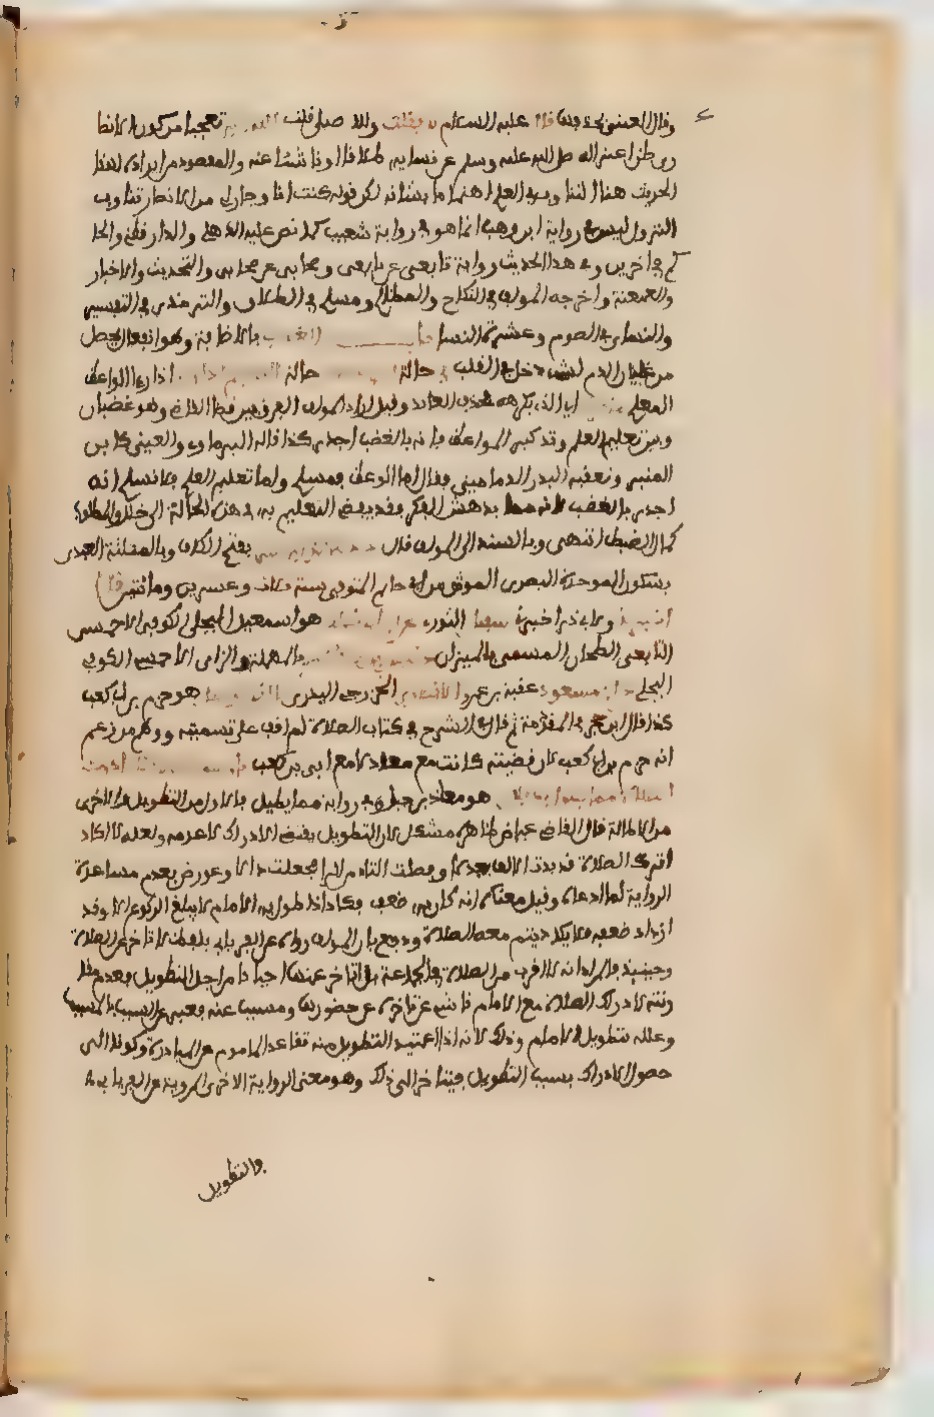 وقال العيني بحذفها قال عليه السلام لا فقلت والاصيلي قلت الله اكبر تعجبا من كون الانصا
ري ظن اعتزاله صلى الله عليه وسلم عن نسايه طلاقا او ناشئا عنه والمقصود من ايراد هذا
الحديث هنا التناوب في العلم اهتماما بشانه لكن قوله كنت انا وجار لي من الانصار نتناوب
النزول ليس في رواية ابن وهب انما هو في رواية شعيب كما نص عليه الذهلي والدارقطني والحا
كم في اخرين وفي هذا الحديث رواية تابعي عن تابعي وصحابي عن صحابي والتحديث والاخبار
والعنعنة واخرجه المولف في النكاح والمظالم ومسلم في الطلاق والترمذي في التفسير
والنسائي في الصوم وعشرة النسا باب الغضب بالاضافة وهو انفعال يحصل
من غليان الدم لشيء دخل في القلب في حالة حالة اذا راى الواعظ
المعلم اي الذي يكرهه فحذف العائد وقيل اراد المولف الفرق بين قضا القاضي وهو غضبان
وبين تعليم العلم وتذكير الواعظ فانه بالغضب اجدر كذا قاله البرماوي والعيني كابن
المنير وتعقبه البدر الدماميني فقال اما الوعظ فمسلم واما تعليم العلم فلا نسلم انه
اجدر بالغضب لانه مما يدهش الفكر فقد يفضي التعليم به في هذه الحالة الى خلل والمطلوب
كمال الضبط انتهى وبالسند الى المولف قال بفتح الكاف وبالمثلثة العبدي
بسكون الموحدة البصري الموثق من ابي حاتم المتوفى سنة ثلاث وعشرين ومائتين قال
ولابي ذر اخبرنا سفيان الثوري عن هو اسمعيل البجلي الكوفي الاحمسي
التابعي الطحان المسمى بالميزان بالمهملة والزاي الاحمسي الكوفي
البجلي مسعود عقبة بن عمرو الانصاري الخزرجي البدري هو حزم بن ابي كعب
كذا قال ابن حجر في المقدمة ثم قال في الشرح في كتاب الصلاة لم اقف على تسميته ووهم من زعم
انه حزم بن ابي كعب لان قضيته كانت مع معاذ لا مع ابي بن كعب
هو معاذ بن جبل وفي رواية مما يطيل بالاول من التطويل والاخرى
من الاطالة قال القاضي عياض ظاهره مشكل لان التطويل يقتضي الادراك لا عدمه ولعله لاكاد
اترك الصلاة فزيدت الالف بعد لا وفصلت التاء من الرا فجعلت دالا وعورض بعدم مساعدة
الرواية لما ادعاه وقيل معناه انه كان به ضعف فكان اذا طول به الامام لا يبلغ الركوع الا وقد
ازداد ضعفه فلا يكاد يتم معه الصلاة ودفع بان المولف رواه عن الفريابي بلفظ لاتاخر عن الصلاة
وحينئذ فالمراد انه لا اقرب من الصلاة في الجماعة بل اتاخر عنها احيانا من اجل التطويل فعدم مقا
ربته لادراك الصلاة مع الامام ناشئ عن تاخره عن حضورها ومسبب عنه فعبر عن السبب بالمسبب
وعلله بتطويل الامام وذلك لانه اذا اعتيد التطويل منه تقاعد الماموم عن المبادرة وكونه الى
حصول الادراك بسبب التطويل فيتاخر الى ذلك وهو معنى الرواية الاخرى المروية عن الفريابي
والتطويل